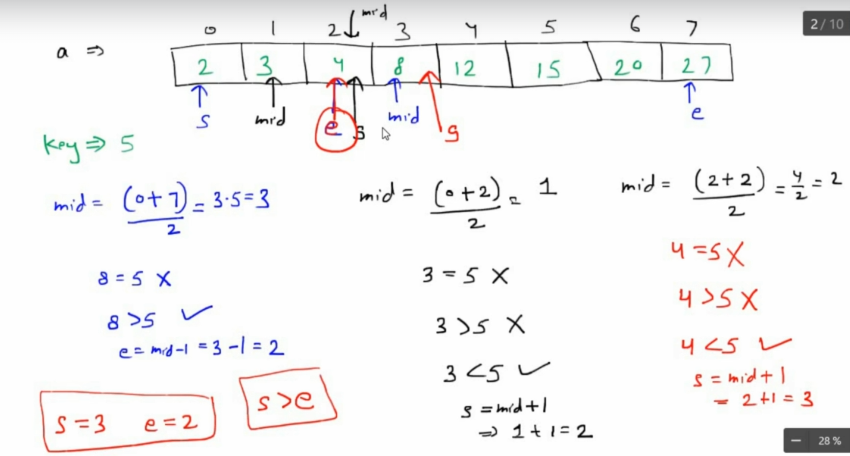 2 / 10
0 1 2 mid 3 4 5 6 7
a ⇒ 2 3 4 8 12 15 20 27
s mid e s mid s e
key ⇒ 5
mid = (0+7)/2 = 3·5 = 3
8 = 5 ✗
8 > 5 ✓
e = mid-1 = 3-1 = 2
s = 3 e = 2
s > e
mid = (0+2)/2 = 1
3 = 5 ✗
3 > 5 ✗
3 < 5 ✓
s = mid+1
⇒ 1+1 = 2
mid = (2+2)/2 = 4/2 = 2
4 = 5 ✗
4 > 5 ✗
4 < 5 ✓
s = mid+1
= 2+1 = 3
28 %